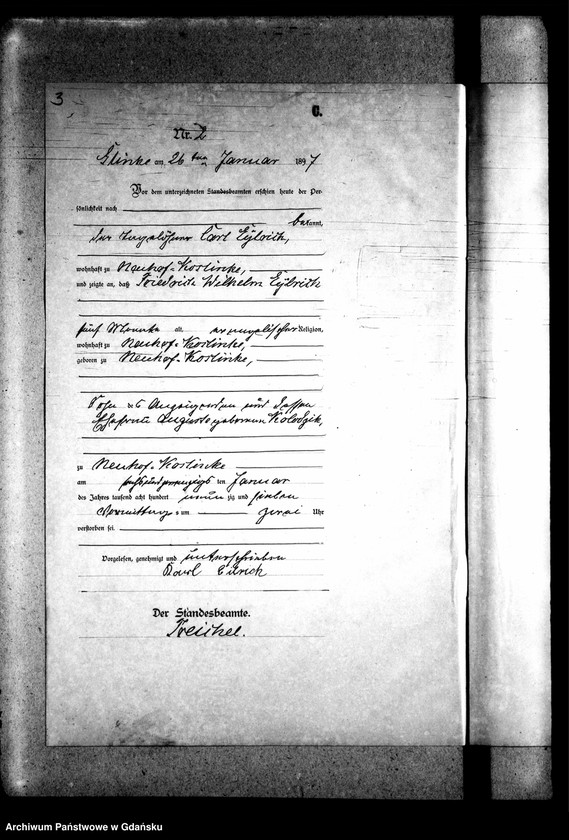 3
C.
Nr. 2
Glinke am 26 ten Januar 1897
Vor dem unterzeichneten Standesbeamten erschien heute der Per-
sönlichkeit nach
bekannt,
der Carl
wohnhaft zu Neuhof-Koslinke,
und zeigte an, daß Friedrich Wilhelm
fünf Monate alt, evangelischer Religion,
wohnhaft zu Neuhof-Koslinke,
geboren zu Neuhof-Koslinke,
Sohn des Anzeigenden und dessen
Ehefrau Auguste geborenen Kolodzik,
zu Neuhof-Koslinke
am sechsundzwanzigsten Januar
des Jahres tausend acht hundert neunzig und sieben
Vormittags um zwei Uhr
verstorben sei.
Vorgelesen, genehmigt und unterschrieben
Karl
Der Standesbeamte.
Treichel.
Archiwum Państwowe w Gdańsku